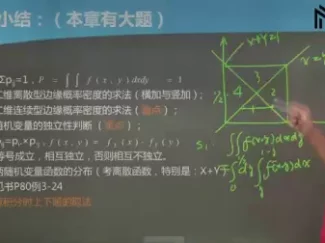 小结：（本章有大题）
Σp =1，P = ∫∫ f(x,y)dxdy = 1
二维离散型边缘概率密度的求法（横加与竖加）；
二维连续型边缘概率密度的求法（重点）；
随机变量的独立性判断（重点）；
=p ×p ，f(x,y) = f (x)·f (y)
等号成立，相互独立，否则相互不独立。
两随机变量函数的分布（考离散函数，特别是：X+Y
见书P80例3-24
积分时上下尾的
x+y=1
x=y
1/2
3
4
2
S₁:
∫∫f(x,y)dxdy
∫dy∫f(x,y)dx